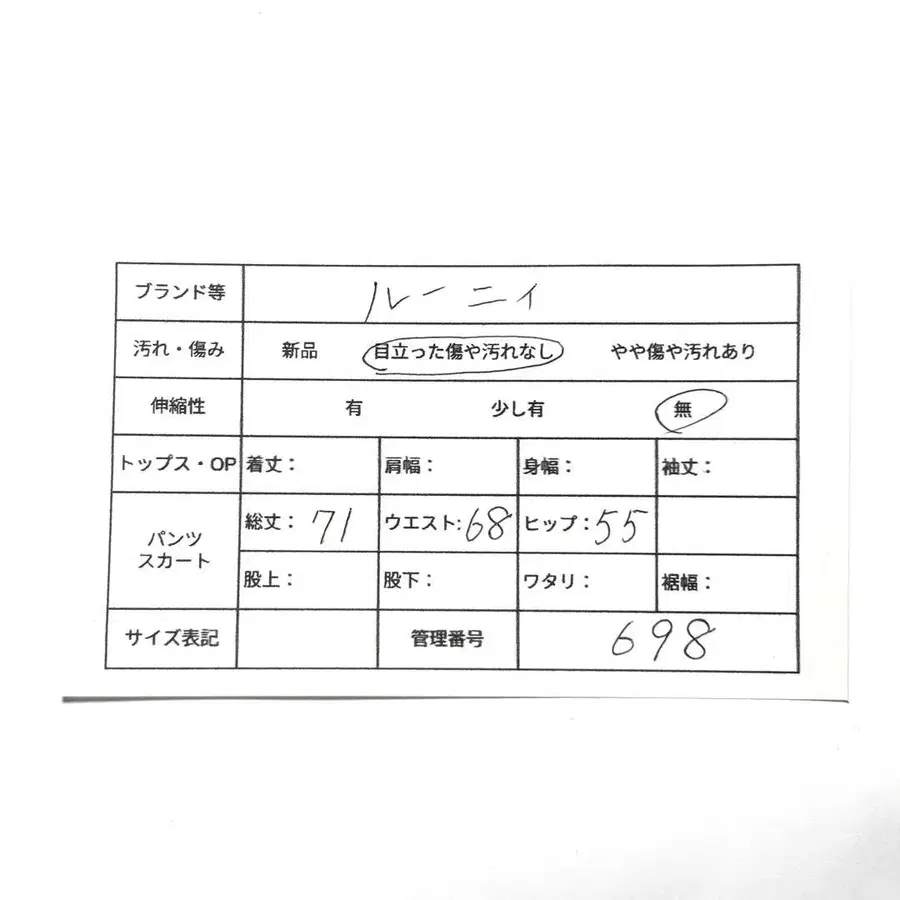 ブランド等 ルーニィ
汚れ・傷み 新品 目立った傷や汚れなし やや傷や汚れあり
伸縮性 有 少し有 無
トップス・OP 着丈： 肩幅： 身幅： 袖丈：
パンツ
スカート
総丈：71 ウエスト:68 ヒップ：55
股上： 股下： ワタリ： 裾幅：
サイズ表記 管理番号 698